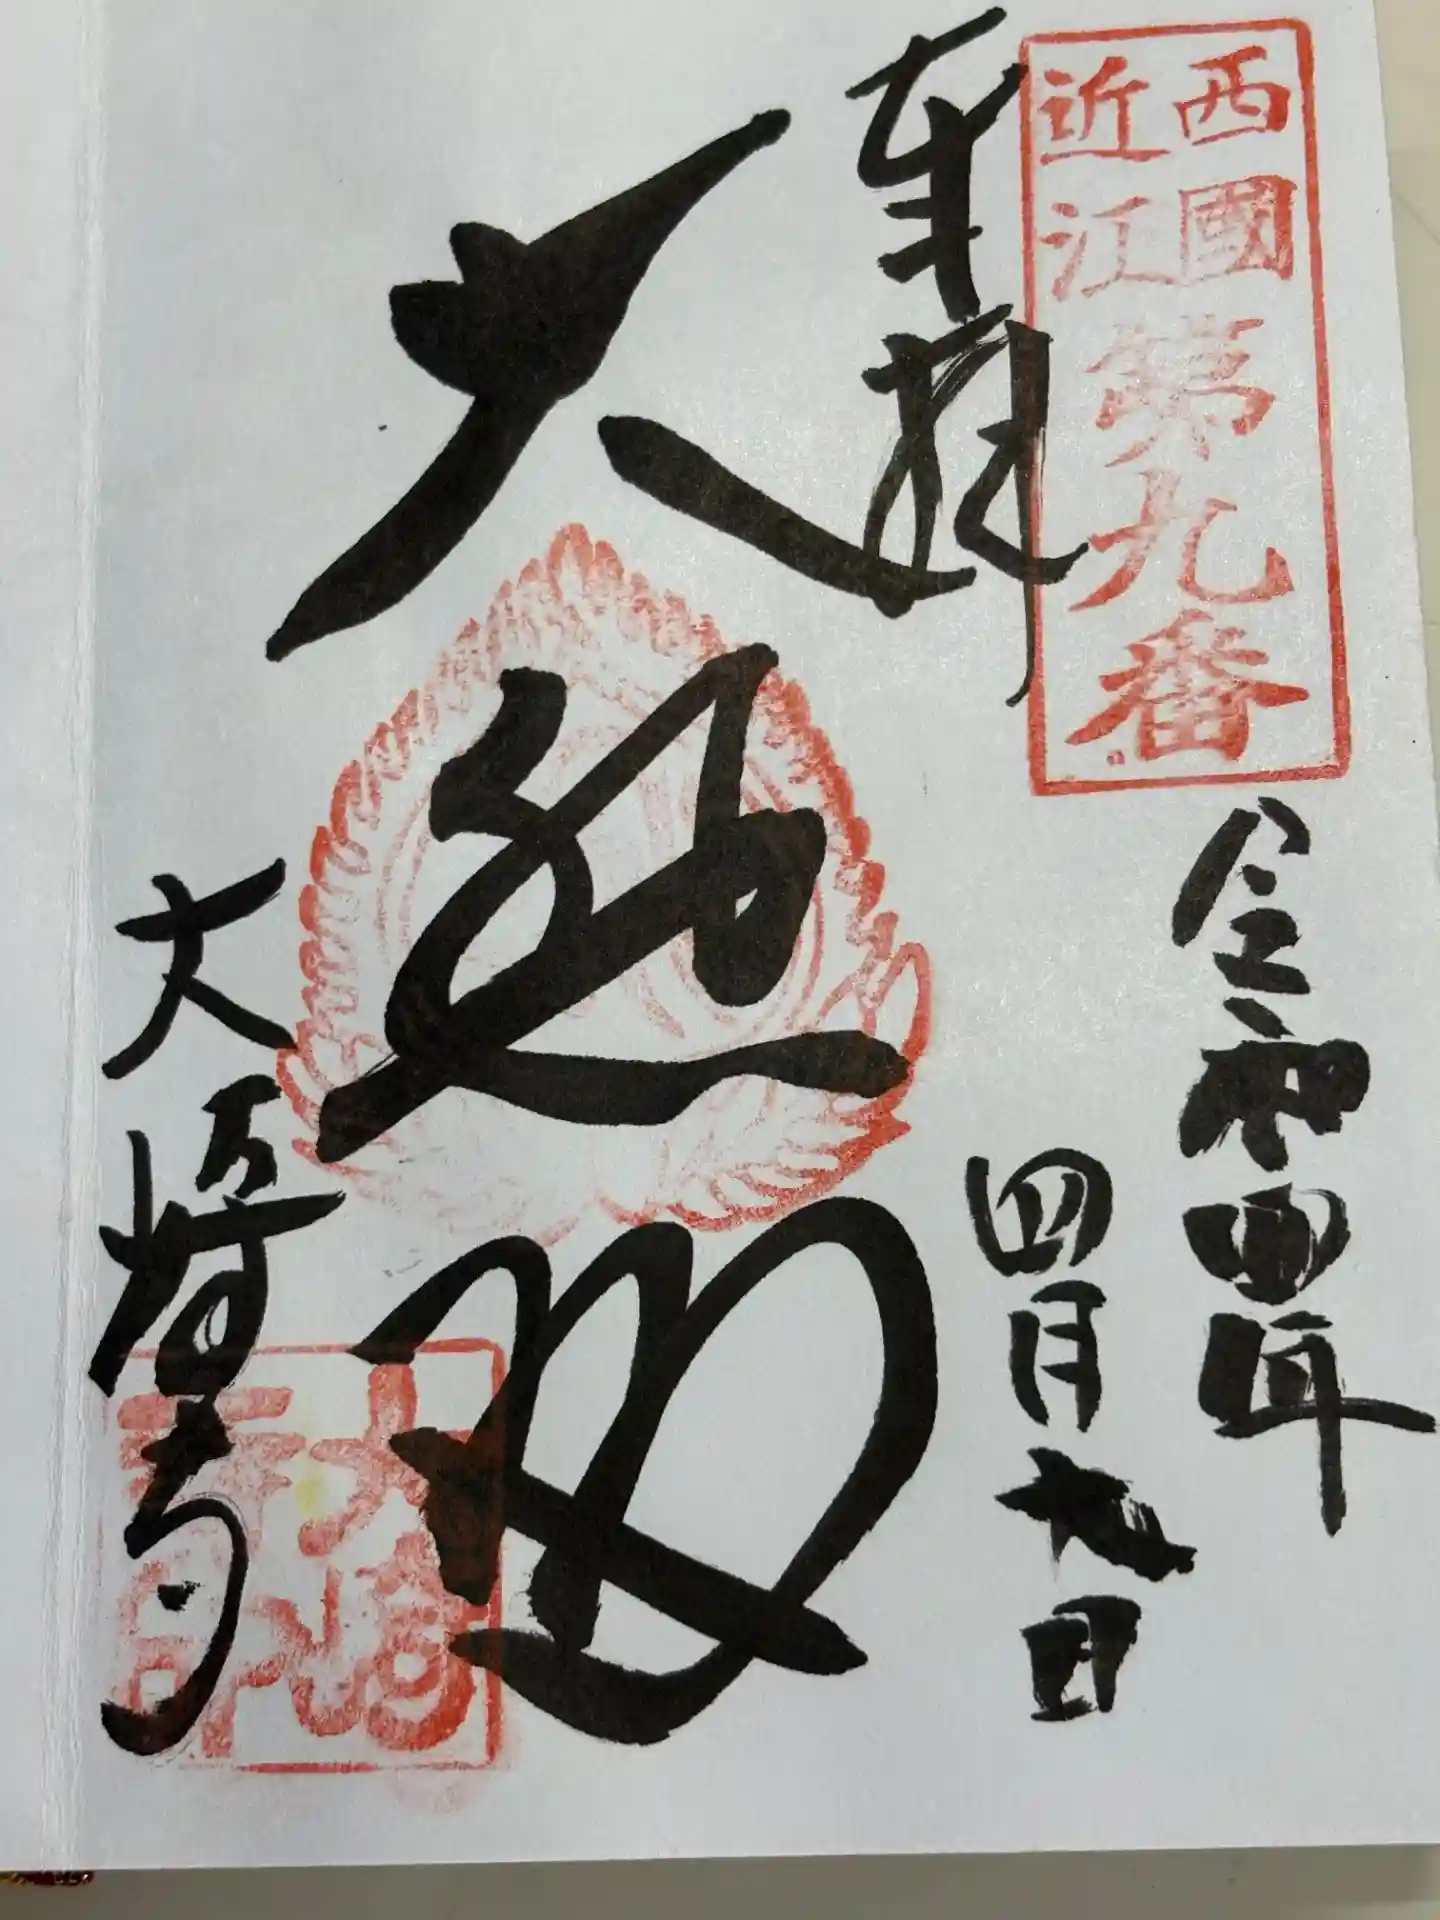 西國
近江
第九番
奉拝
令和四年
四月九日
大悲殿
大崎寺